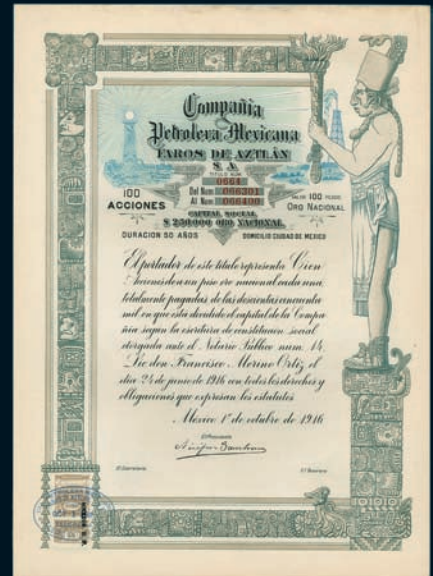 Compañia
Petrolera Mexicana
FAROS DE AZTLÁN
S. A.
TITULO NUM.
0664
100
ACCIONES
Del Num 066301
Al Num 066400
VALOR 100 PESOS
ORO NACIONAL
CAPITAL SOCIAL
$ 250.000 ORO NACIONAL
DURACION 50 AÑOS
DOMICILIO CIUDAD DE MEXICO
El portador de este titulo representa Cien
Acciones de un peso oro nacional cada una,
totalmente pagadas de las doscientas cincuenta
mil en que esta dividido el capital de la Compa
ñia segun la escritura de constitucion social
otorgada ante el Notario Público num. 14,
Lic. don Francisco Merino Ortiz el
dia 24 de junio de 1916 con todos los derechos y
obligaciones que expresan los estatutos.
México 1º de octubre de 1916
El Presidente
El Comisario
El Tesorero